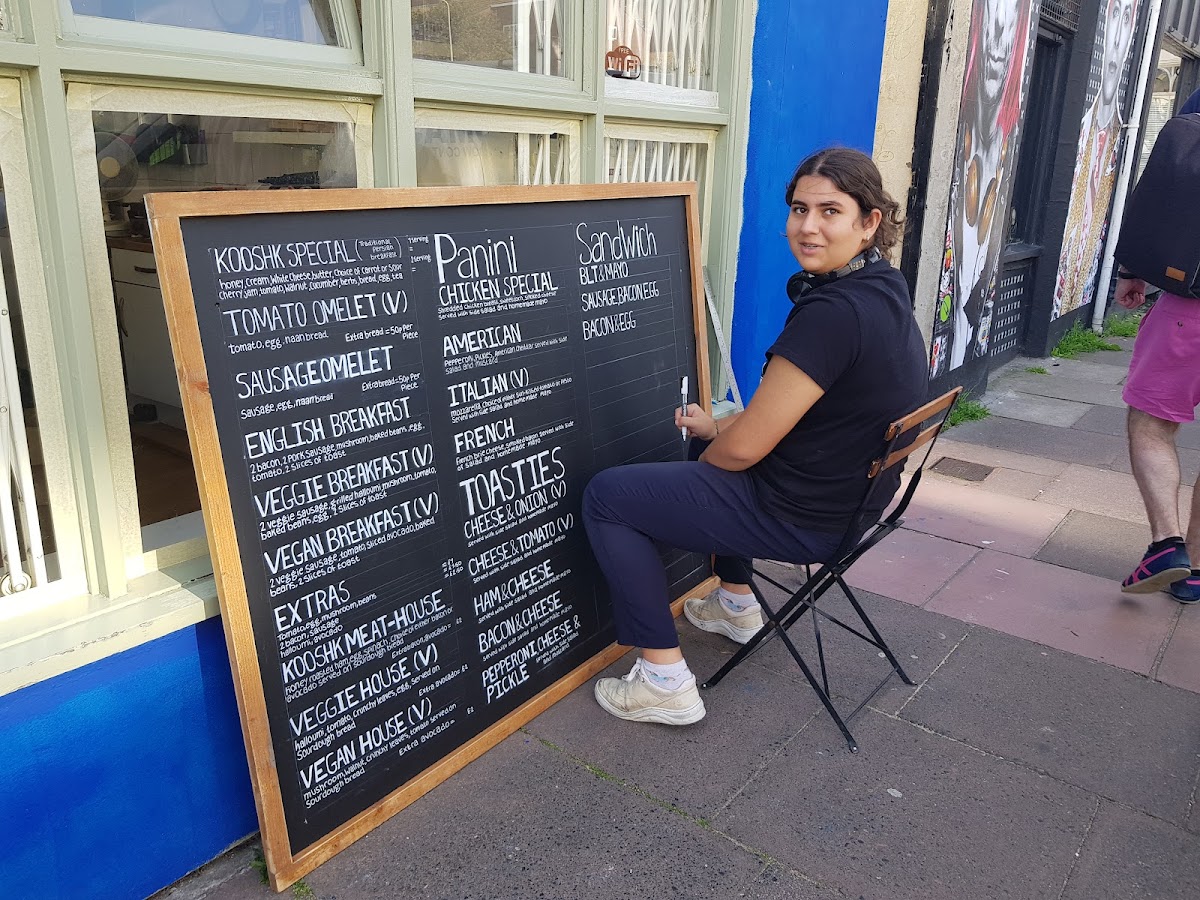 FREE
WiFi
KOOSHK SPECIAL (Traditional Persian breakfast)
honey, cream, white cheese, butter, choice of carrot or sour
cherry jam, tomato, walnut, cucumber, beans, bread, egg, tea
1 serving
=
serving
=
TOMATO OMELET (V)
tomato, egg, naan bread
Extra bread = 50p Per
Piece
SAUSAGE OMELET
Extra bread = 50p Per
Piece
Sausage, egg, naan bread
ENGLISH BREAKFAST
2 bacon, 2 pork sausage mushroom, baked beans, egg,
tomato, 2 slices of toast
VEGGIE BREAKFAST (V)
2 veggie sausage, grilled halloumi, mushroom, tomato,
baked beans, egg, 2 slices of toast
VEGAN BREAKFAST (V)
2 veggie sausage, tomato, sliced avocado, baked
beans, 2 slices of toast
EXTRAS
Tomato, egg, mushroom, beans
2 bacon, sausage
halloumi, avocado
KOOSHK MEAT-HOUSE
honey roasted ham, egg, spinach, choice of either bacon or
avocado served on sourdough bread
Extra bacon, avocado =
VEGGIE HOUSE (V)
halloumi, tomato, crunchy leaves, egg, served on
Sourdough bread
Extra avocado =
VEGAN HOUSE (V)
mushroom, walnut, crunchy leaves, tomato served on
Sourdough bread
Extra avocado =
Panini
CHICKEN SPECIAL
Shredded chicken breast, sweetcorn, smoked cheese
Served with side salad and homemade mayo
AMERICAN
Pepperoni, Pickles, American cheddar served with side
salad and mustard
ITALIAN (V)
mozzarella, choice of sun-dried tomato or Pesto
Served with side salad and homemade mayo
FRENCH
French brie cheese, smoked bacon served with side
of salad and homemade mayo
TOASTIES
CHEESE & ONION (V)
Served with side salad and homemade mayo
CHEESE & TOMATO (V)
Served with side salad and homemade mayo
HAM & CHEESE
Served with side salad and homemade mayo
BACON & CHEESE
Served with side salad and homemade mayo
PEPPERONI CHEESE &
PICKLE
Served with side salad
and mustard
Sandwich
BLT & MAYO
SAUSAGE, BACON, EGG
BACON & EGG